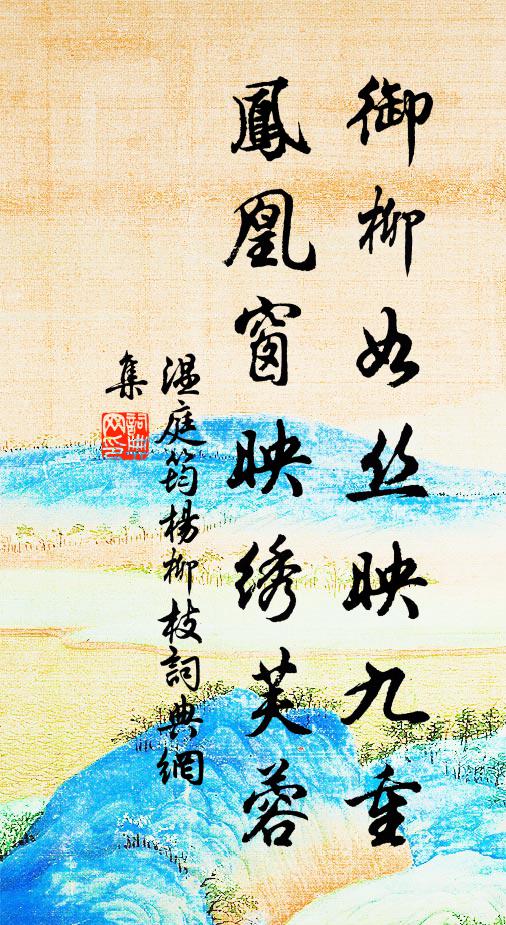 御柳如丝映九重
鳳凰窗映绣芙蓉
温庭筠楊柳枝詞典網
集
詞典網印